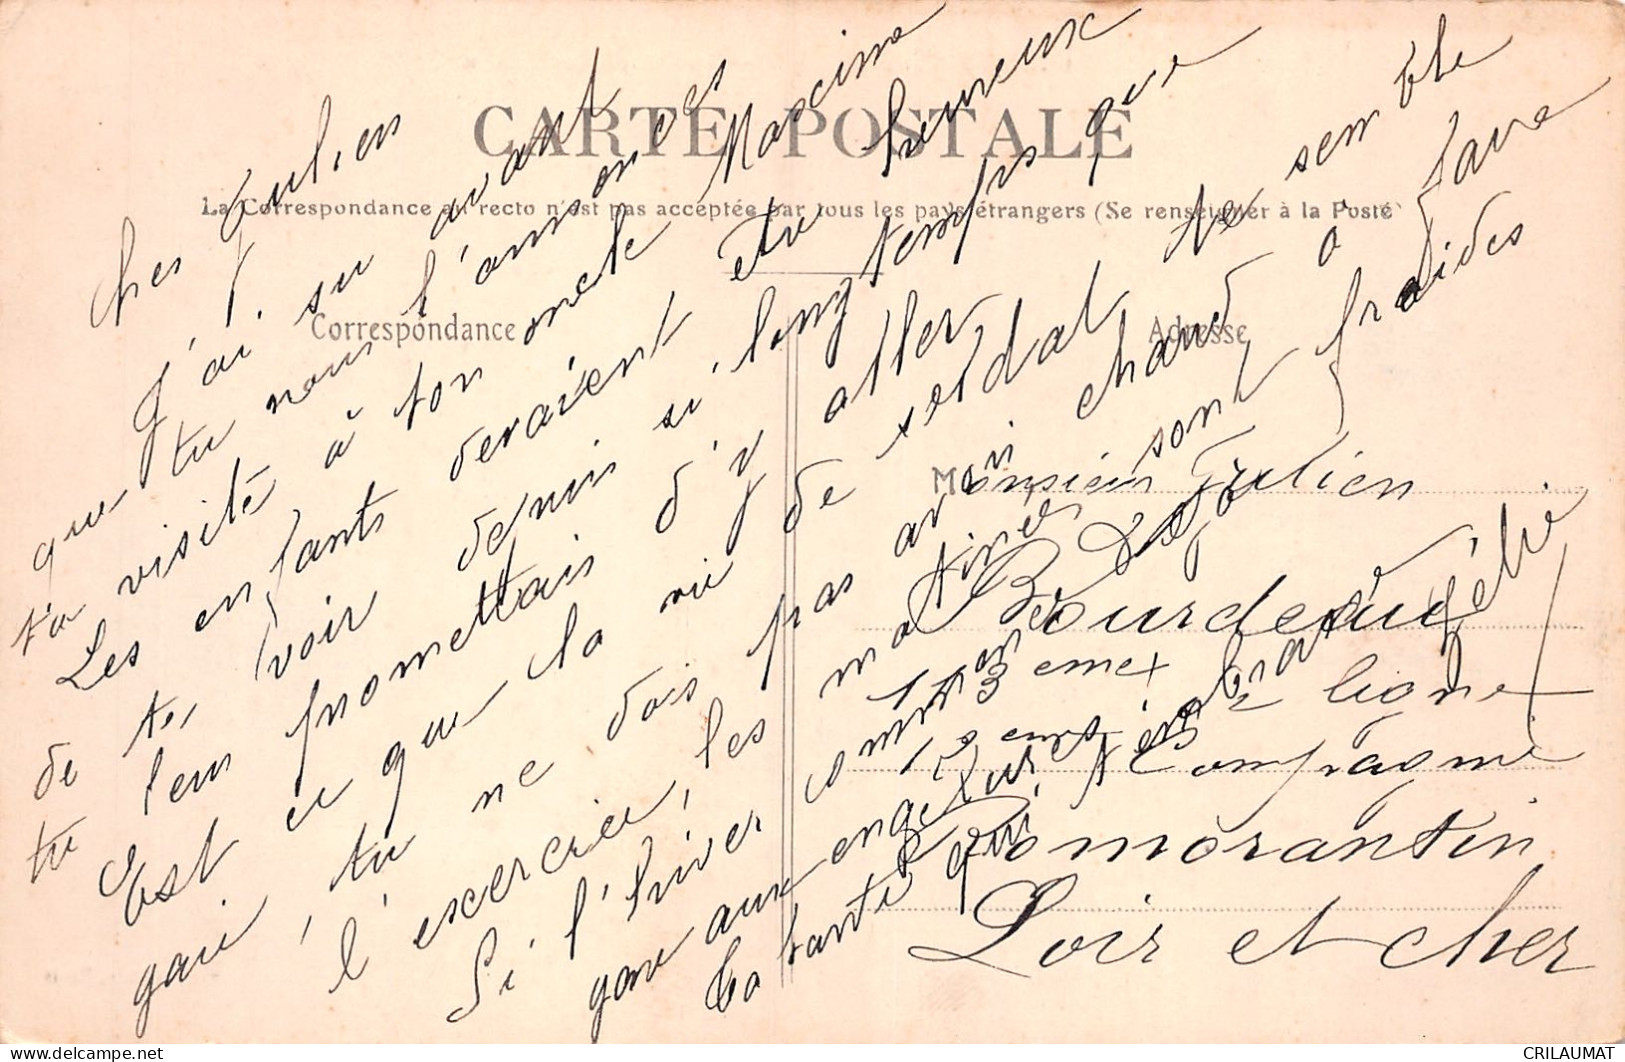 CARTE POSTALE
La Correspondance au recto n'est pas acceptée par tous les pays étrangers (Se renseigner à la Poste)
Correspondance
Adresse
Cher Julien
J'ai su avant
que tu nous l'annonces
ta visite à ton oncle Maxime
Les enfants devraient etre heureux
de te voir depuis si longtemps que
tu leur promettais d'y aller
Est ce que la vie de soldat te semble
gaie, tu ne dois pas avoir chaud à faire
l'escercice, les matinées sont fraides
Si l'hiver commence de
gare aux engelures
Ta tante qui t'embrasse
Zélie
Monsieur Julien
Bourdeau
113 eme de ligne
12 eme Compagnie
Romorantin
Loir et Cher
CRILAUMAT